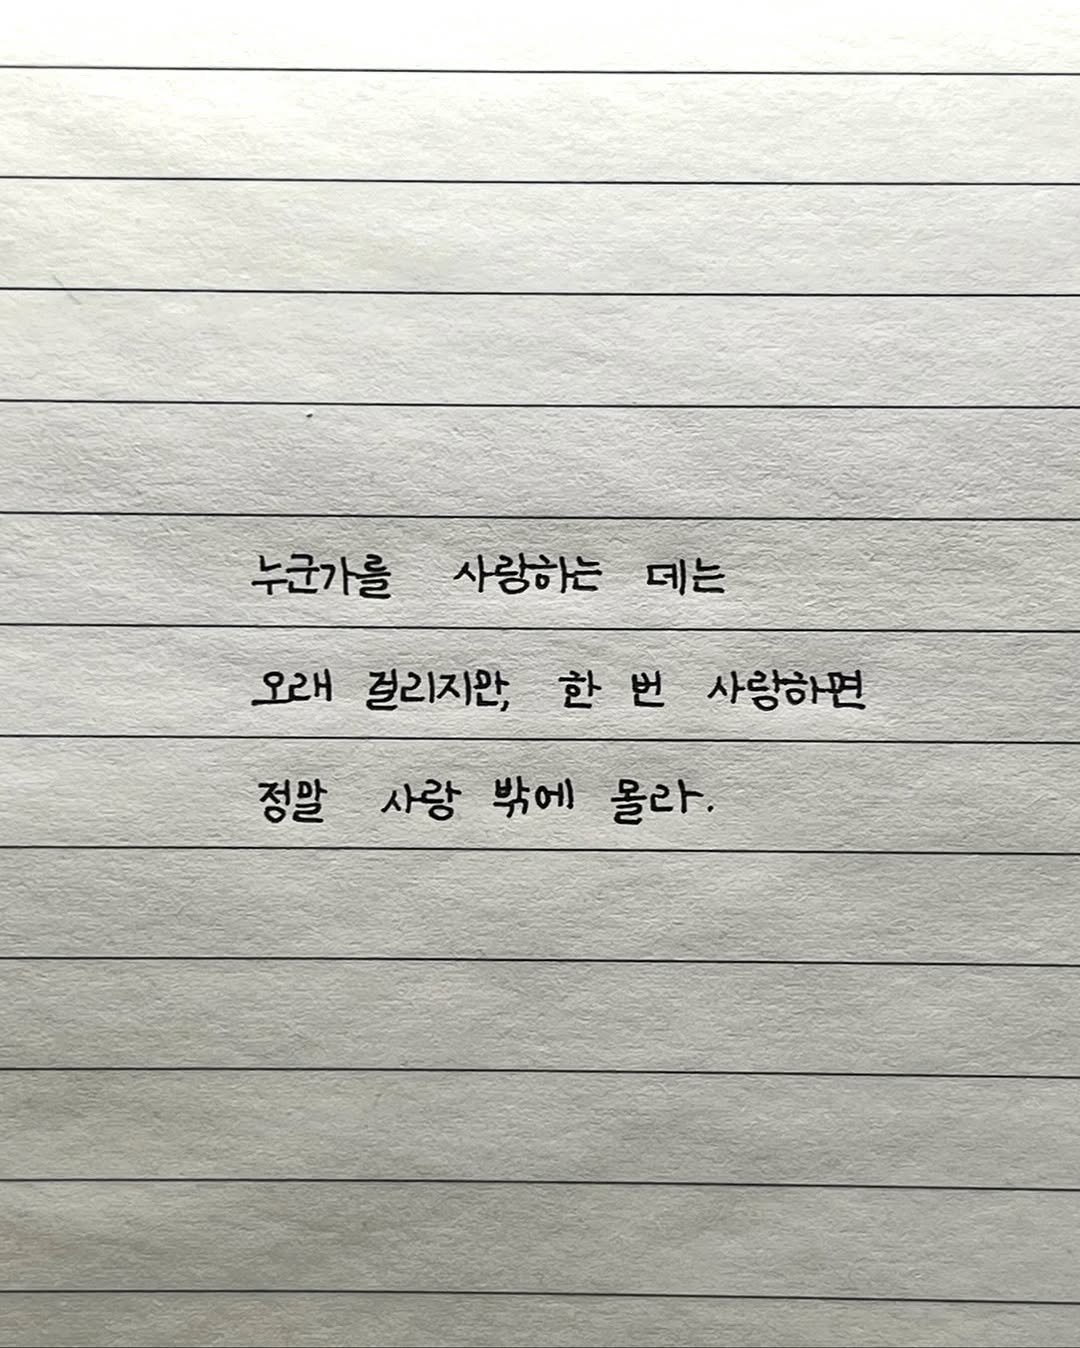 누군가를 사랑하는 데는
오래 걸리지만, 한 번 사랑하면
정말 사랑 밖에 몰라.